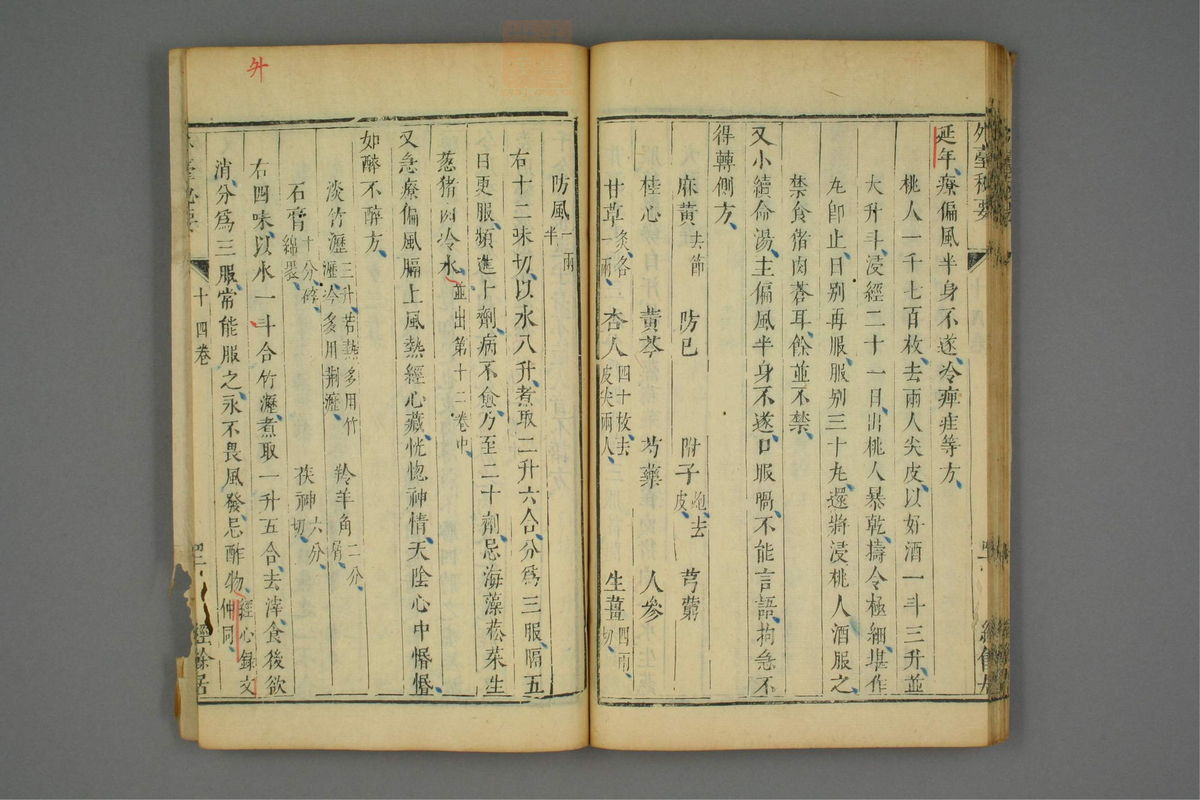 延年療偏風半身不遂冷痺疰等方
桃人一千七百枚去兩人尖皮以好酒一斗三升並
大升斗浸經二十一日出桃人暴乾擣令極細堪作
丸卽止日別再服服別三十丸還將浸桃人酒服之
禁食猪肉蒼耳餘並不禁
又小續命湯主偏風半身不遂口眼喎不能言語拘急不
得轉側方
麻黃去節 防巳 附子炮去皮 芎藭
桂心 黃芩 芍藥 人參
甘草炙各一兩 杏人四十枚去皮尖兩人 生薑四兩切
防風一兩半
右十二味切以水八升煮取二升六合分爲三服隔五
日更服頻進十劑病不愈乃至二十劑忌海藻菘菜生
葱猪肉冷水並出第十二卷中
又急療偏風膈上風熱經心藏恍惚神情天陰心中惛惛
如醉不醉方
淡竹瀝三升若熱多用竹瀝冷多用荆瀝 羚羊角二分屑
石膏十分碎綿褁 茯神六分切
右四味以水一斗合竹瀝煮取一升五合去滓食後欲
消分爲三服常能服之永不畏風發忌酢物經心録文仲同
十四卷
經餘居
外